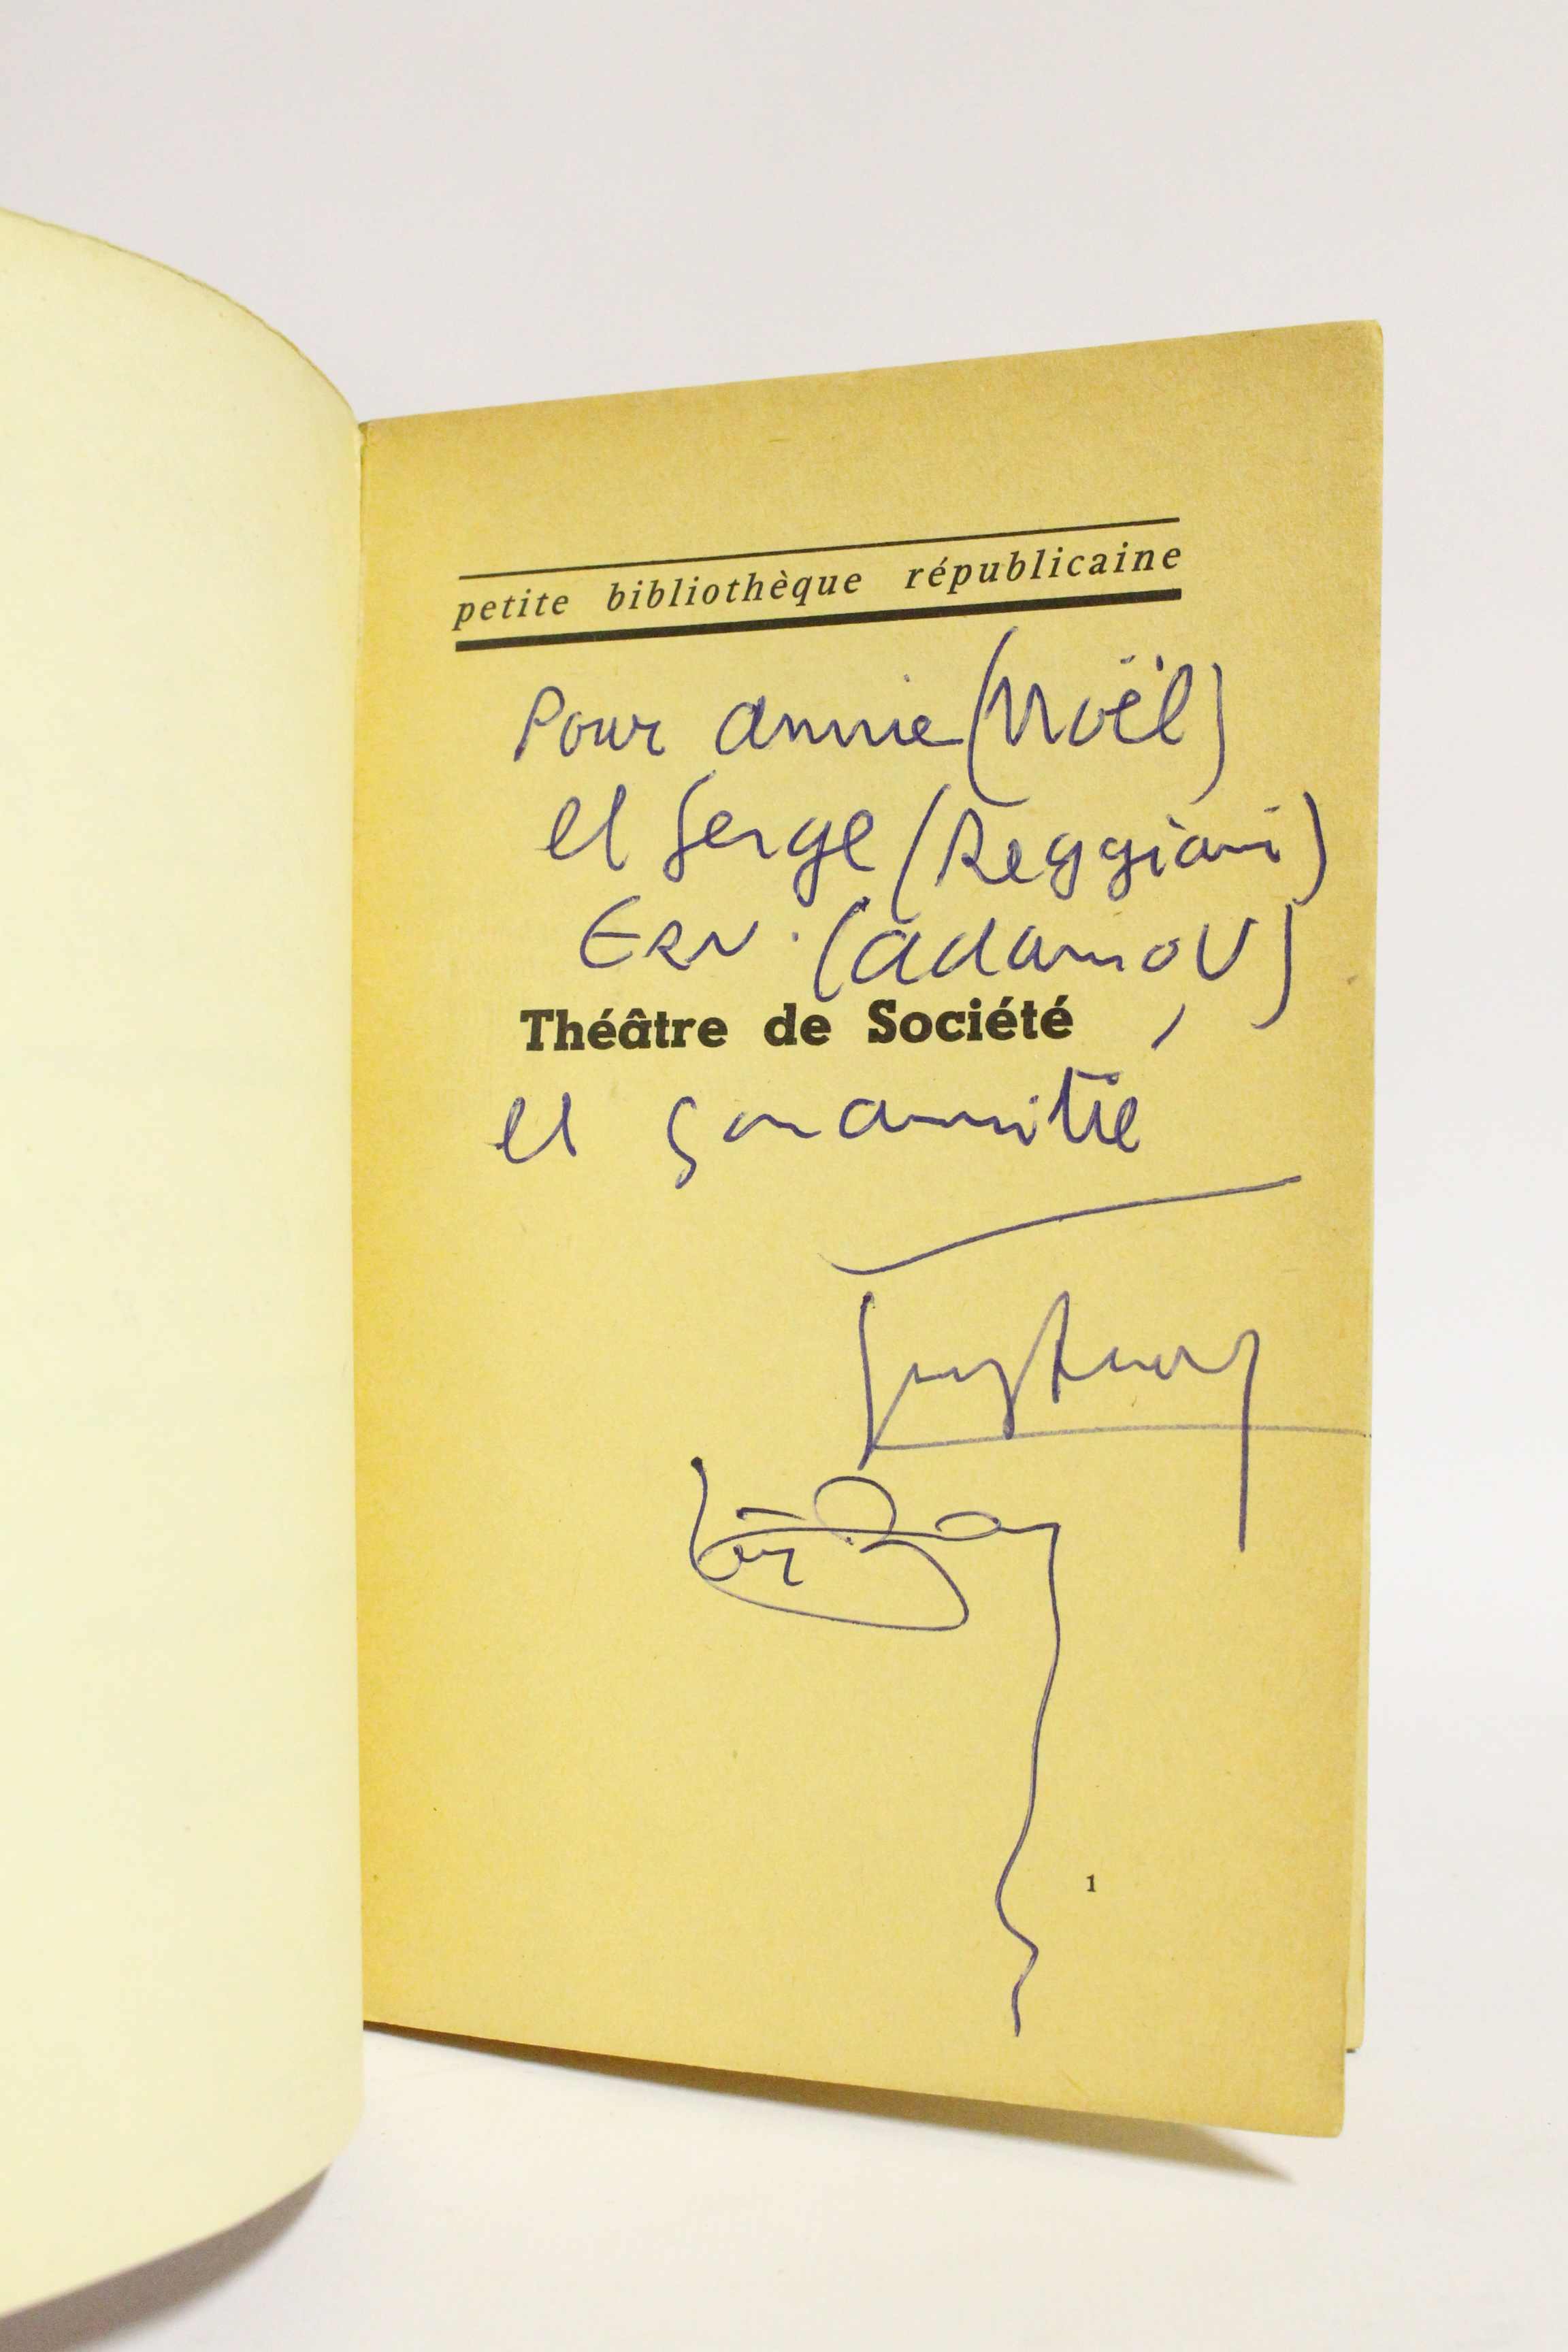 petite bibliothèque républicaine
Pour annie (Noël)
et Serge (Reggiani)
Ern. (adamov)
Théâtre de Société
et son amitié
1